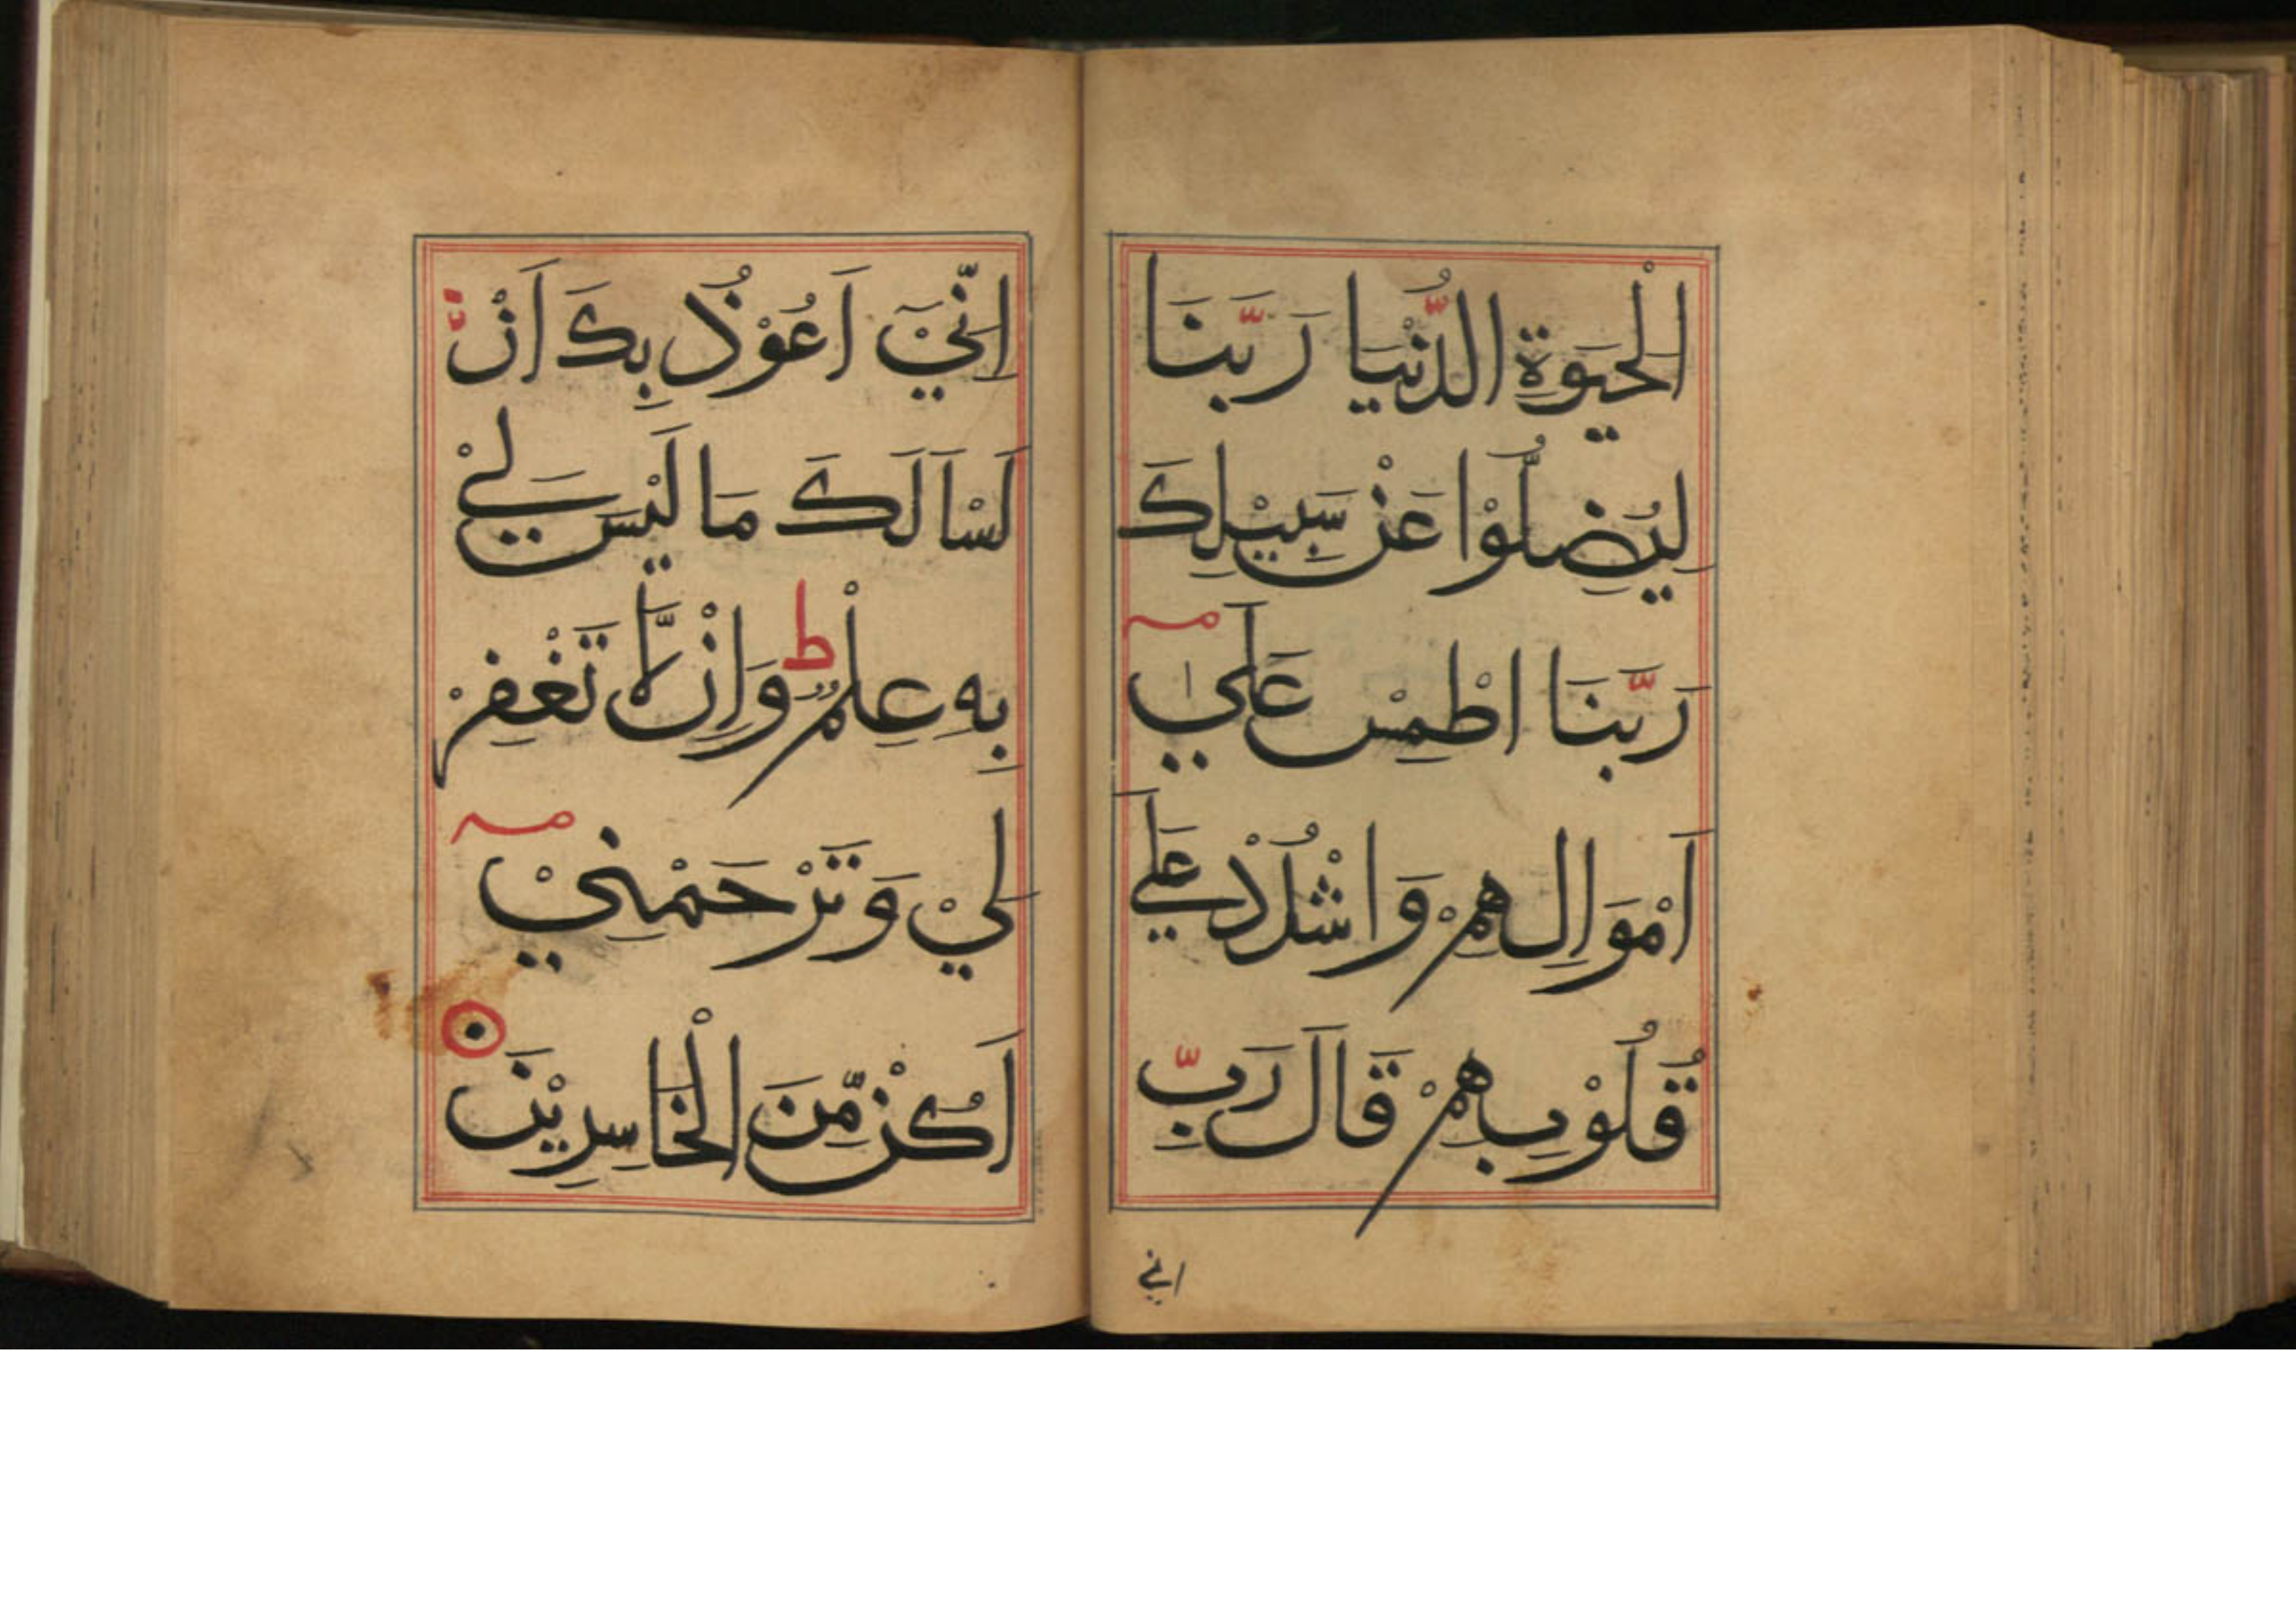 الْحَيَوةِ الدُّنْيَا رَبَّنَا
لِيُضِلُّوْا عَنْ سَبِيْلِكَ
رَبَّنَا اطْمِسْ عَلَىٰ
اَمْوَالِهِمْ وَاشْدُدْ عَلَي
قُلُوْبِهِمْ قَالَ رَبِّ
اني
اِنِّيْ اَعُوْذُ بِكَ اَنْ
لَسْاَلَكَ مَا لَيْسَ لِيْ
بِهِ عِلْمٌ ط وَاِنْ لَّا تَغْفِرْ
لِيْ وَتَرْحَمْنِيْ
اَكُنْ مِّنَ الْخَاسِرِيْنَ